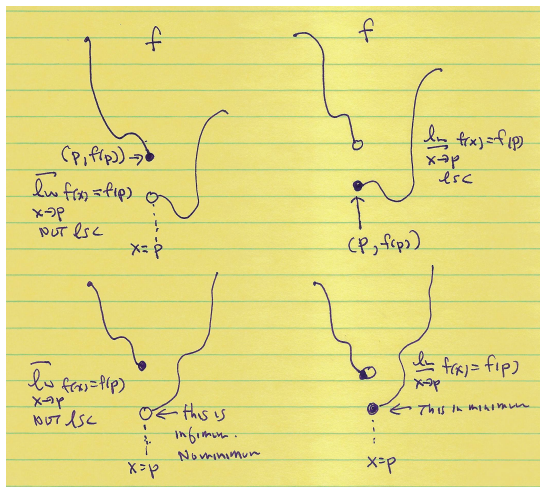 f
f
(p, f(p)) →
lim f(x) = f(p)
x→p
NOT lsc
x = p
lim f(x) = f(p)
x→p
lsc
(p, f(p))
lim f(x) = f(p)
x→p
NOT lsc
← this is
infimum.
No minimum
x = p
lim f(x) = f(p)
x→p
← This is minimum
x = p